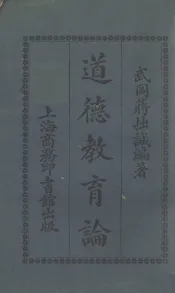 武岡蔣拙誠編著
道德教育論
上海商務印書館出版